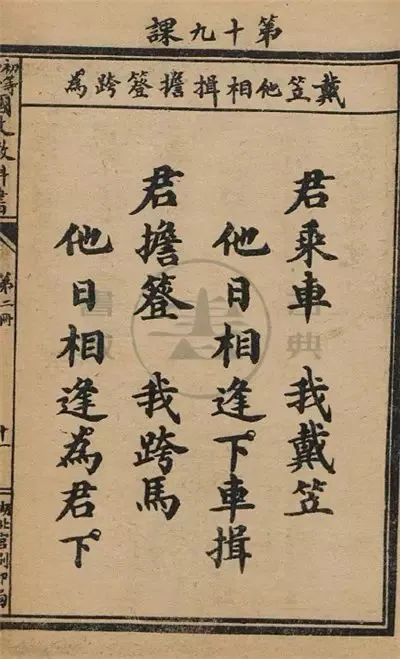 第十九課
戴笠他相揖擔簦跨為
君乘車 我戴笠
他日相逢下車揖
君擔簦 我跨馬
他日相逢為君下
初等國文教科書
第二冊
十一
湖北官刷印局